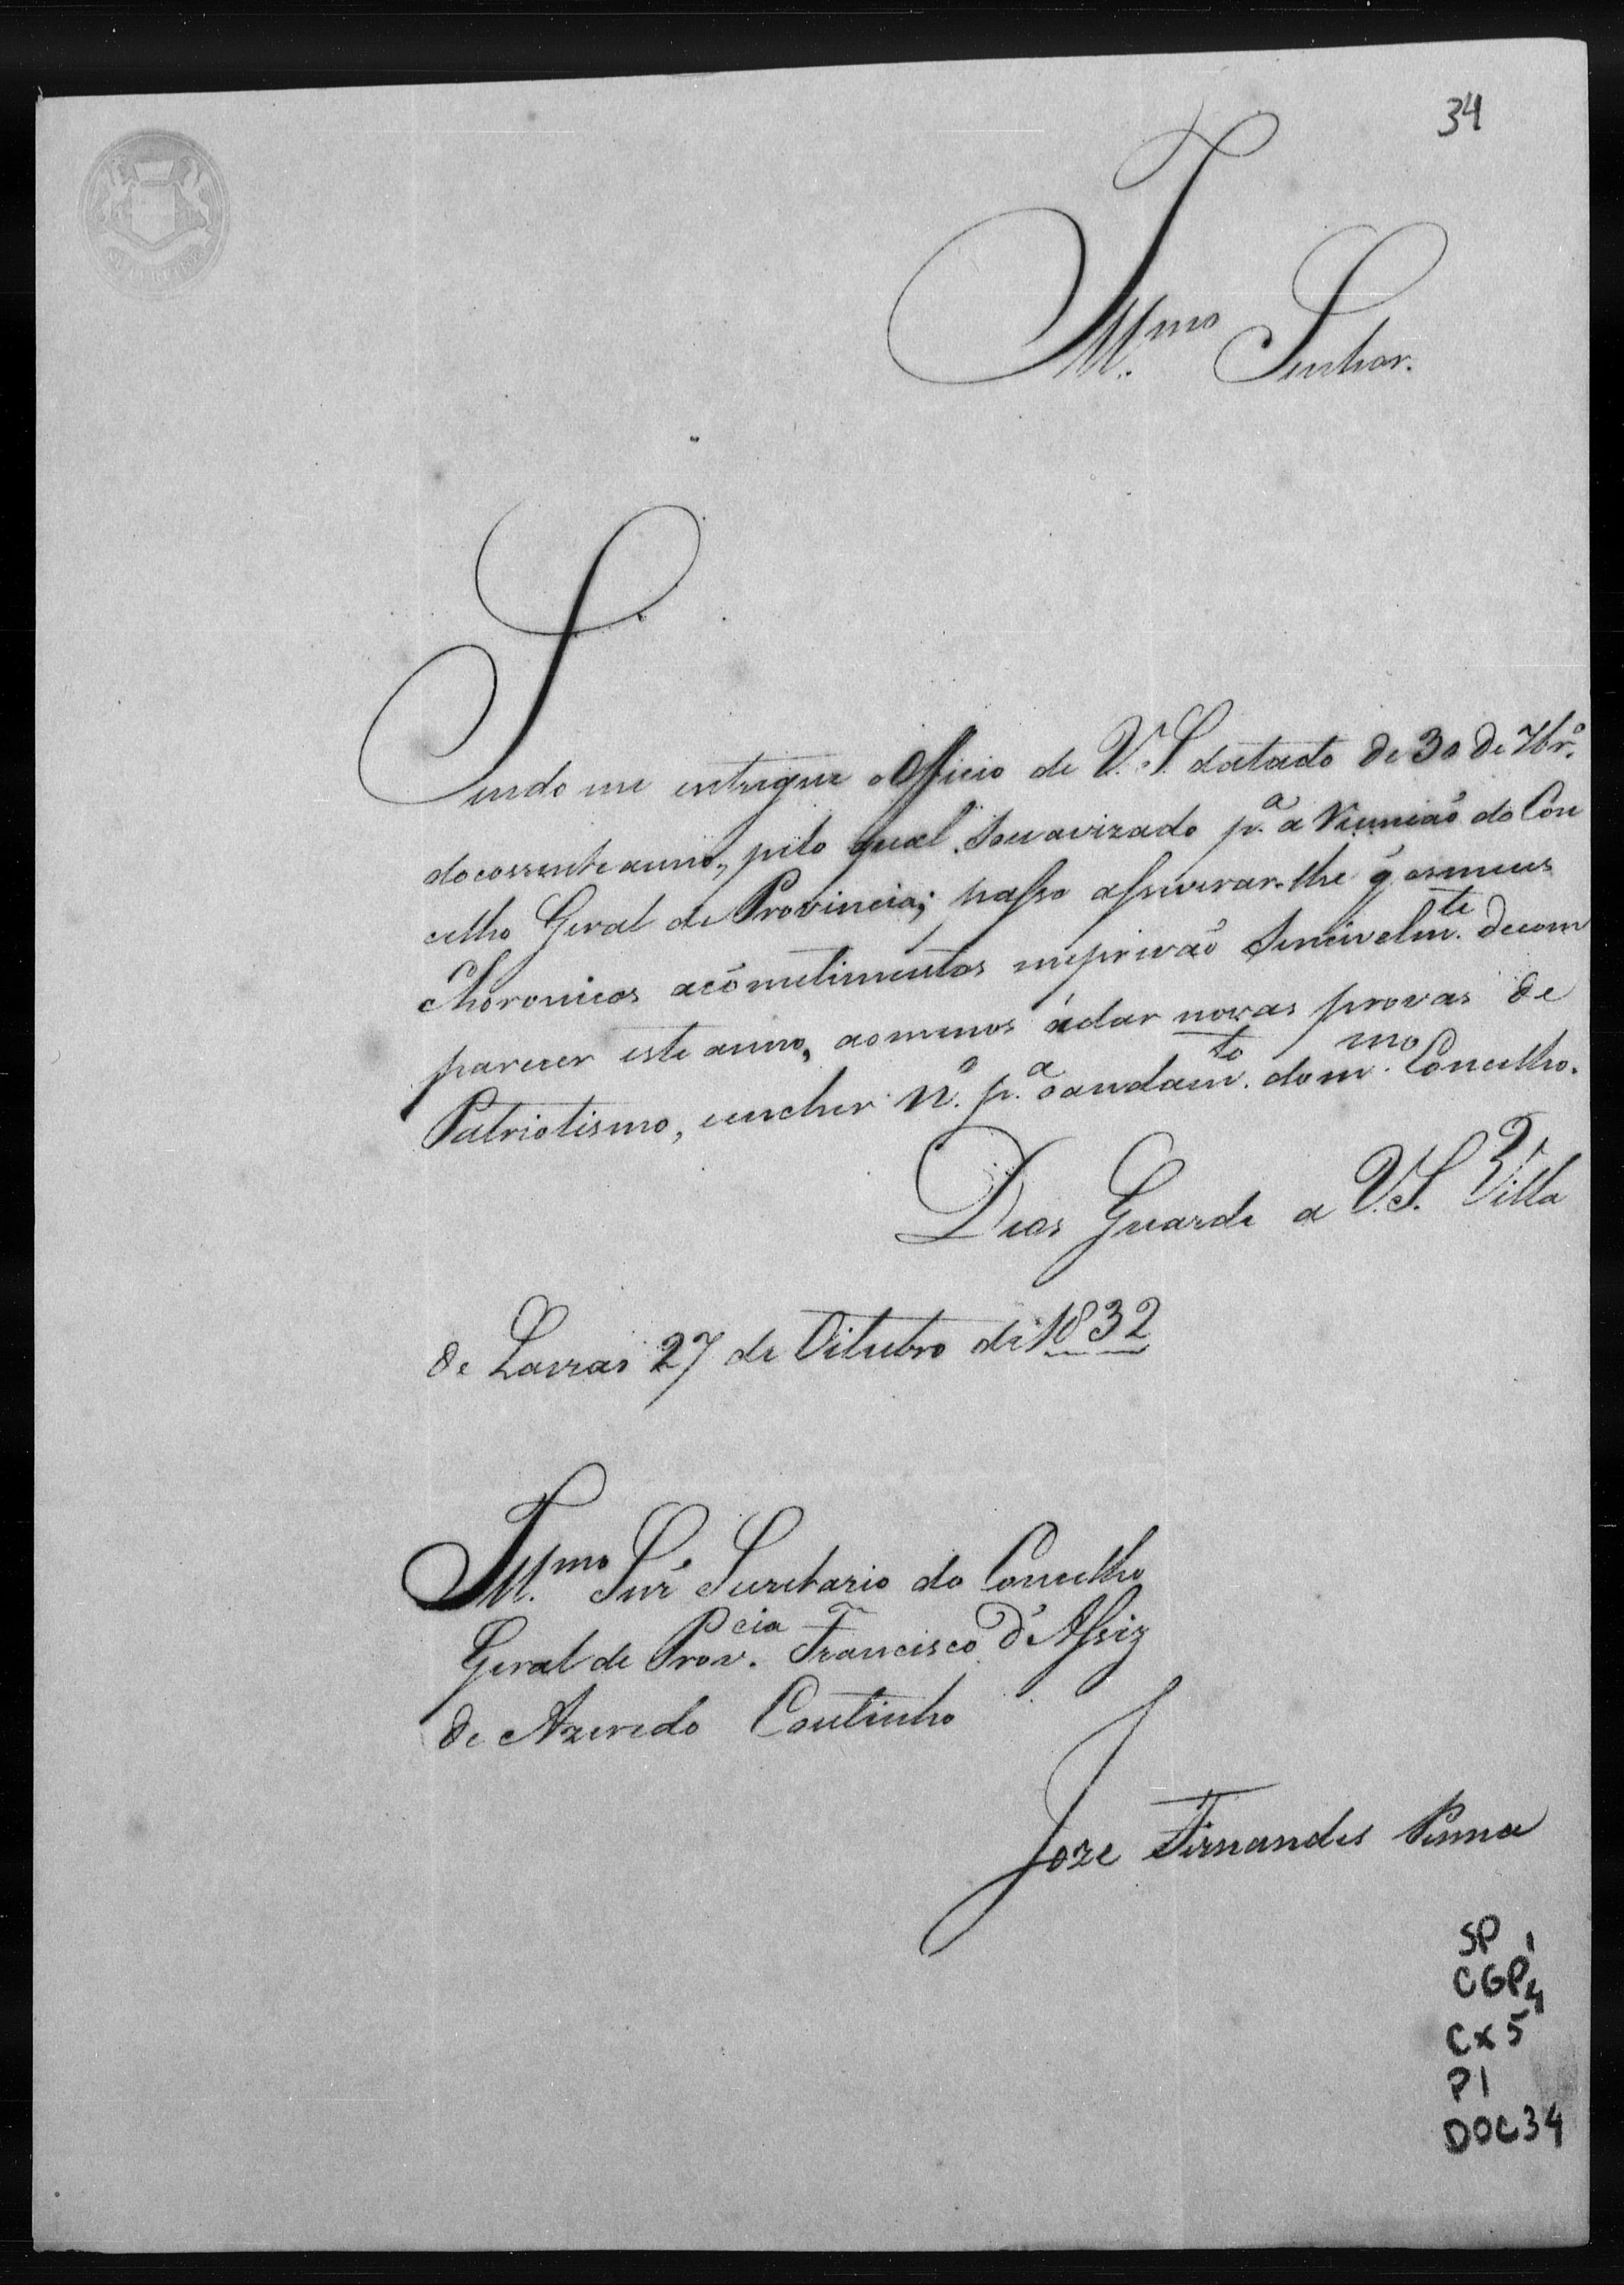 34
Ill.mo Senhor.
Sendo me entregue o Officio de V. S. datado de 30 de 7br.o
do corrente anno, pelo qual sou avizado p.a a Reunião do Con
celho Geral de Provincia; passo assiverar-lhe q̃ os meus
Choronicos acómetimentos me privaõ sencivelm.te de com
parecer este anno, ao menos ádar novas provas de
Patriotismo, e encher n.o p.a o andam.to do m.mo Concelho.
Deos Guarde a V. S. Villa
de Lavras 27 de Oitubro de 1832
Ill.mo Snr̃ Secretario do Concelho
Geral de Prov.cia Francisco d'Assiz
de Azeredo Coutinho
Joze Fernandes Penna
SP 1
CGP4
CX 5
P1
DOC34